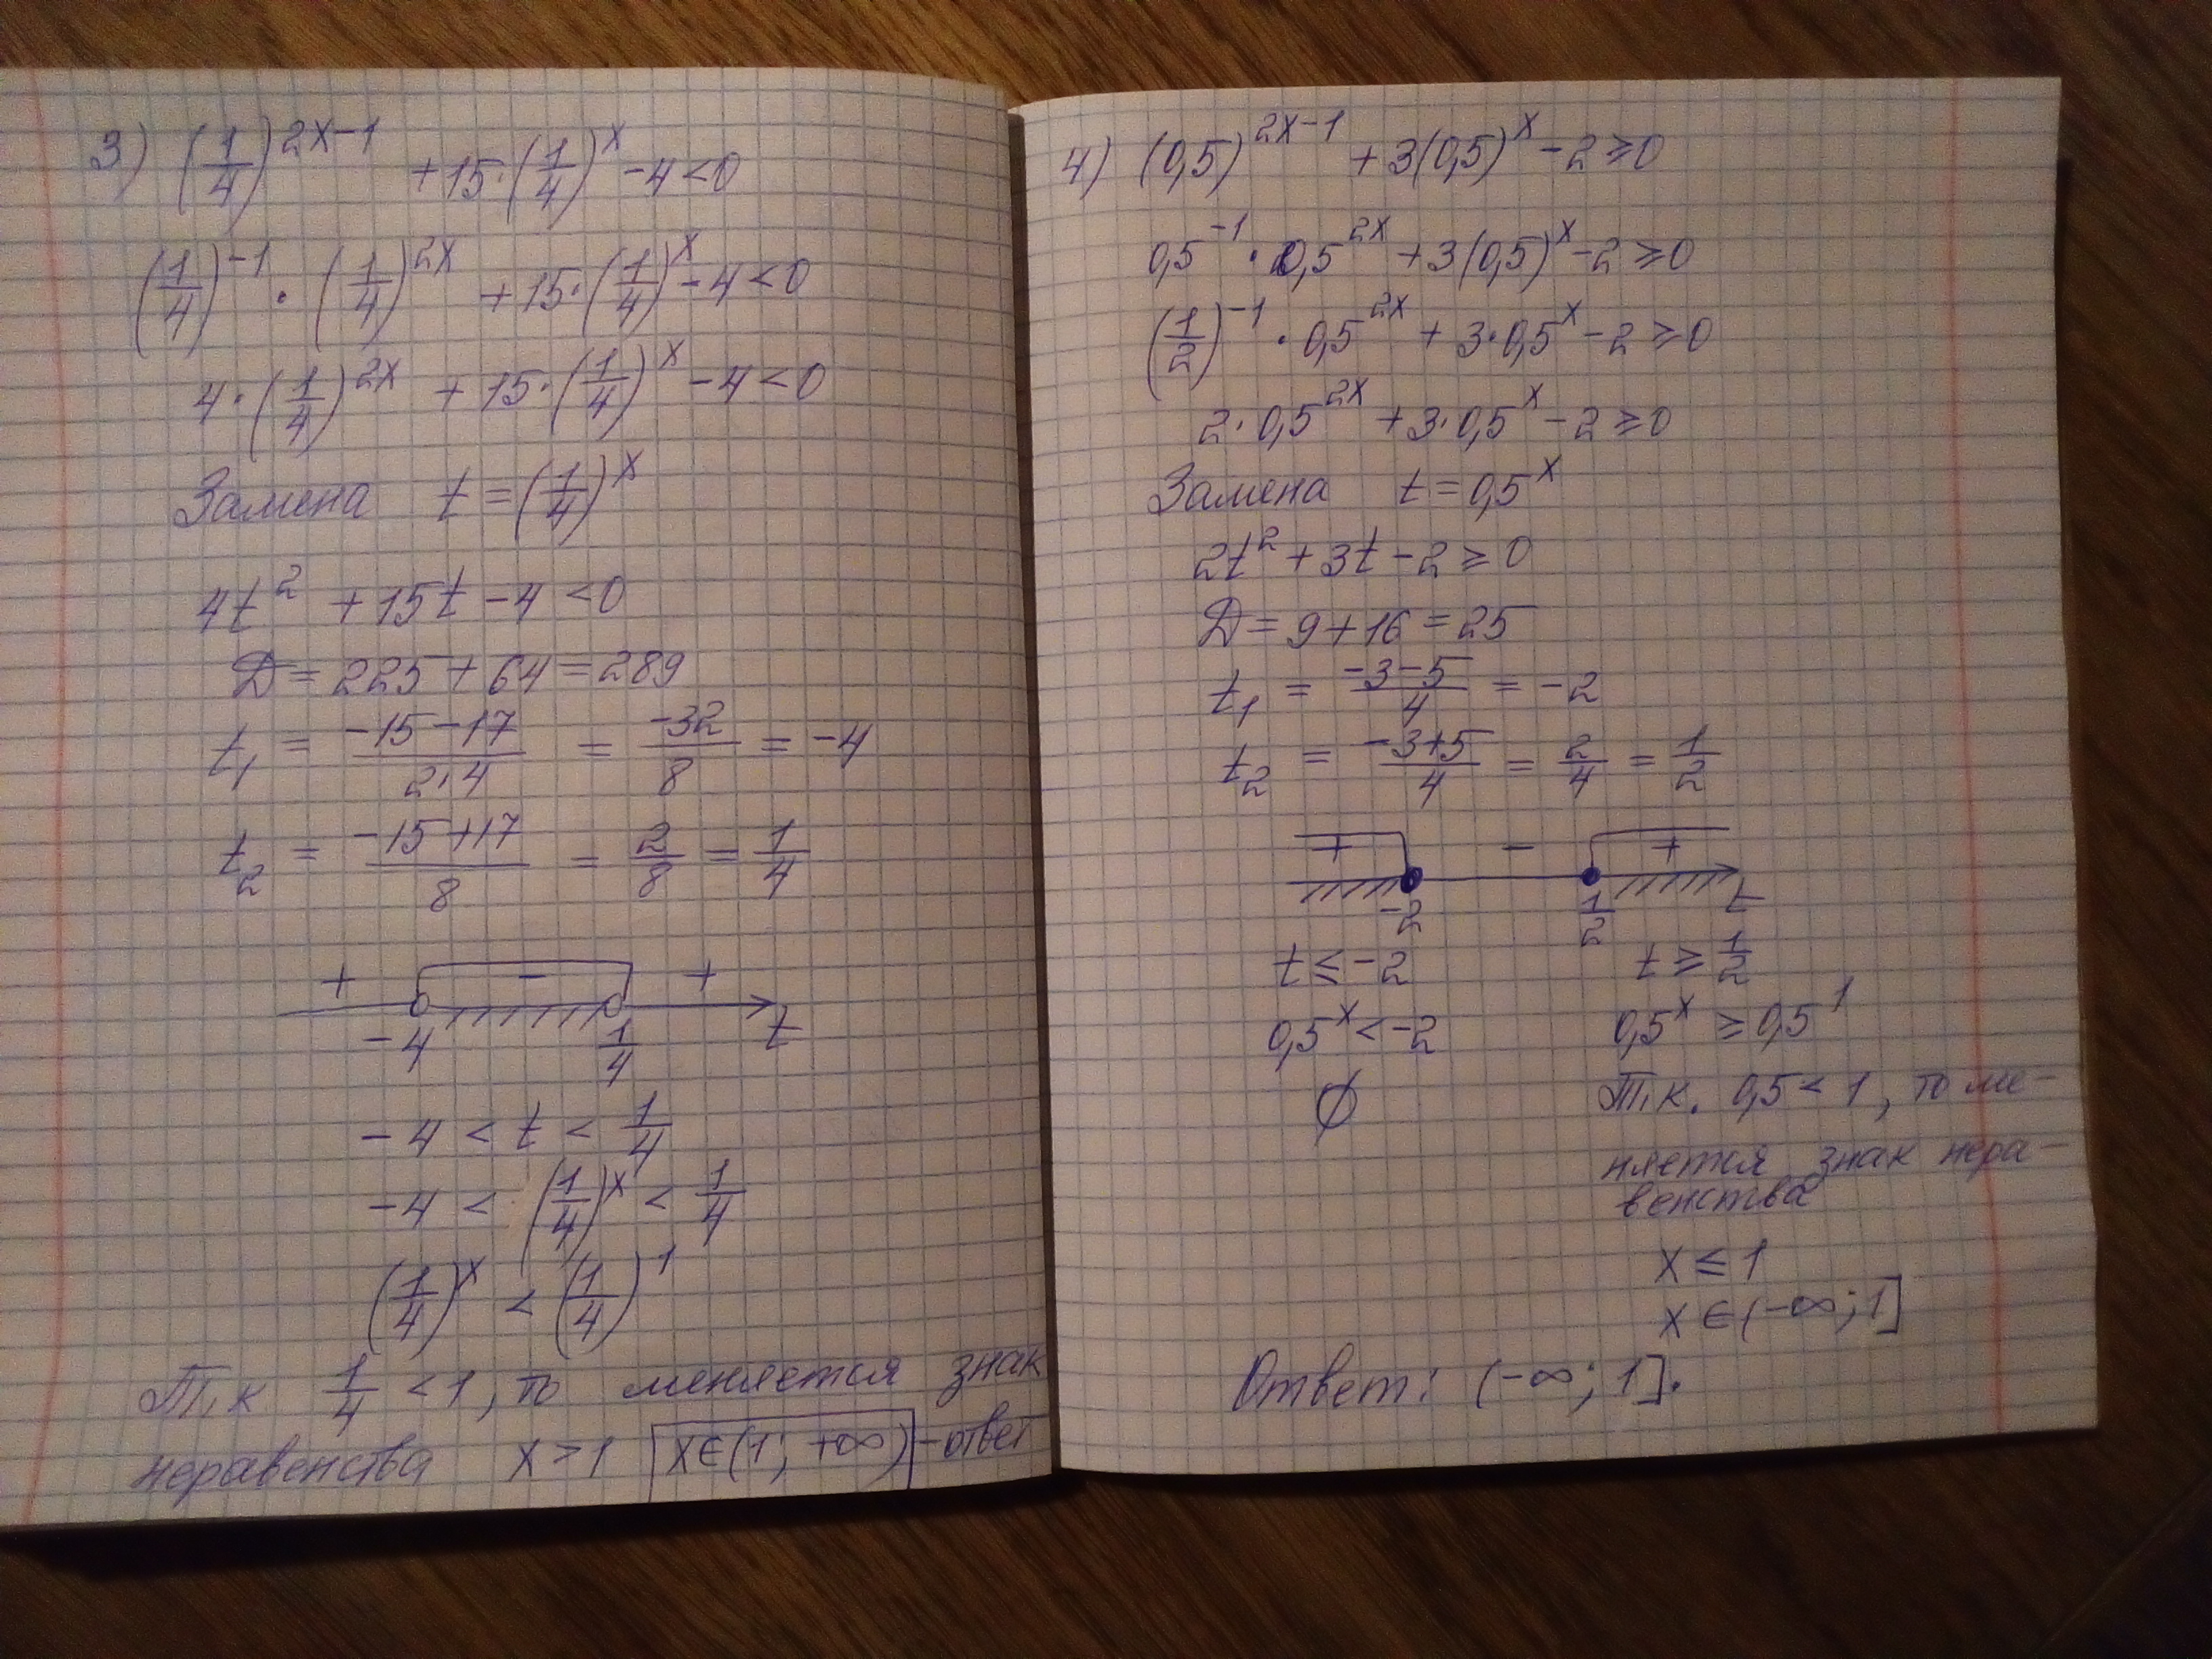 3) (1/4)^(2x-1) + 15·(1/4)^x - 4 < 0
(1/4)^(-1) · (1/4)^(2x) + 15·(1/4)^x - 4 < 0
4·(1/4)^(2x) + 15·(1/4)^x - 4 < 0
Замена t = (1/4)^x
4t² + 15t - 4 < 0
D = 225 + 64 = 289
t₁ = (-15-17)/(2·4) = -32/8 = -4
t₂ = (-15+17)/8 = 2/8 = 1/4
+ - +
-4 1/4 t
-4 < t < 1/4
-4 < (1/4)^x < 1/4
(1/4)^x < (1/4)^1
Т.к 1/4 < 1, то меняется знак
неравенства x > 1 x∈(1; +∞) - ответ
4) (0,5)^(2x-1) + 3(0,5)^x - 2 ⩾ 0
0,5^(-1) · 0,5^(2x) + 3(0,5)^x - 2 ⩾ 0
(1/2)^(-1) · 0,5^(2x) + 3·0,5^x - 2 ⩾ 0
2·0,5^(2x) + 3·0,5^x - 2 ⩾ 0
Замена t = 0,5^x
2t² + 3t - 2 ⩾ 0
D = 9 + 16 = 25
t₁ = (-3-5)/4 = -2
t₂ = (-3+5)/4 = 2/4 = 1/2
+ - +
-2 1/2 t
t ⩽ -2 t ⩾ 1/2
0,5^x < -2 0,5^x ⩾ 0,5^1
∅ Т.к. 0,5 < 1, то ме-
няется знак нера-
венства
x ⩽ 1
x∈(-∞; 1]
Ответ: (-∞; 1].